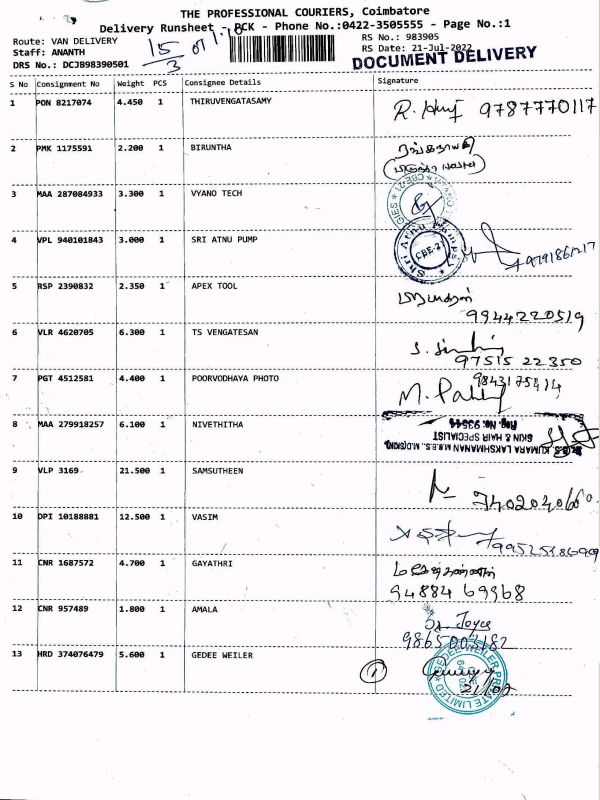 THE PROFESSIONAL COURIERS, Coimbatore
Delivery Runsheet - PCK - Phone No.:0422-3505555 - Page No.:1
Route: VAN DELIVERY
RS No.: 983905
Staff: ANANTH
15/3
RS Date: 21-Jul-2022
DRS No.: DCJB98390501
DOCUMENT DELIVERY
S No Consignment No Weight PCS Consignee Details Signature
1 PON 8217074 4.450 1 THIRUVENGATASAMY 9787770117
2 PMK 1175591 2.200 1 BIRUNTHA
3 MAA 287084933 3.300 1 VYANO TECH
4 VPL 940101843 3.000 1 SRI ATNU PUMP
Shri Atnu Pumps
CBE-21
5 RSP 2390832 2.350 1 APEX TOOL
9944220519
6 VLR 4620705 6.300 1 TS VENGATESAN
97515 22350
7 PGT 4512581 4.400 1 POORVODHAYA PHOTO
8 MAA 279918257 6.100 1 NIVETHITHA
KUMARA LAKSHMANAN M.B.B.S., M.D(SKIN),
SKIN & HAIR SPECIALIST
Reg. No: 93544
9 VLP 3169 21.500 1 SAMSUTHEEN
10 DPI 10188881 12.500 1 VASIM
11 CNR 1687572 4.700 1 GAYATHRI
94884 69968
12 CNR 957489 1.800 1 AMALA
Sr. Joyce
13 HRD 374076479 5.600 1 GEDEE WEILER
1
GEDEE WEILER PRIVATE LIMITED
21/07